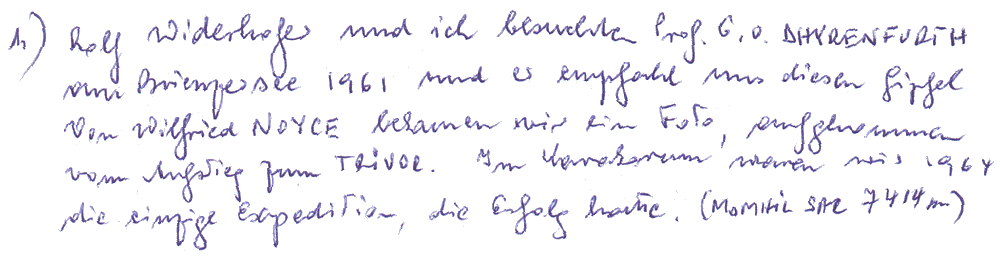 1.) Rolf Widerhofer und ich besuchten Prof. G. O. DHYRENFURTH
am Brienzersee 1961 und er empfahl uns diesen Gipfel
Von Wilfried NOYCE bekamen wir ein Foto, aufgenommen
vom Aufstieg zum TRIVOR. Im Karakorum waren wir 1964
die einzige Expedition, die Erfolg hatte. (MOMHIL SAR 7414 m)